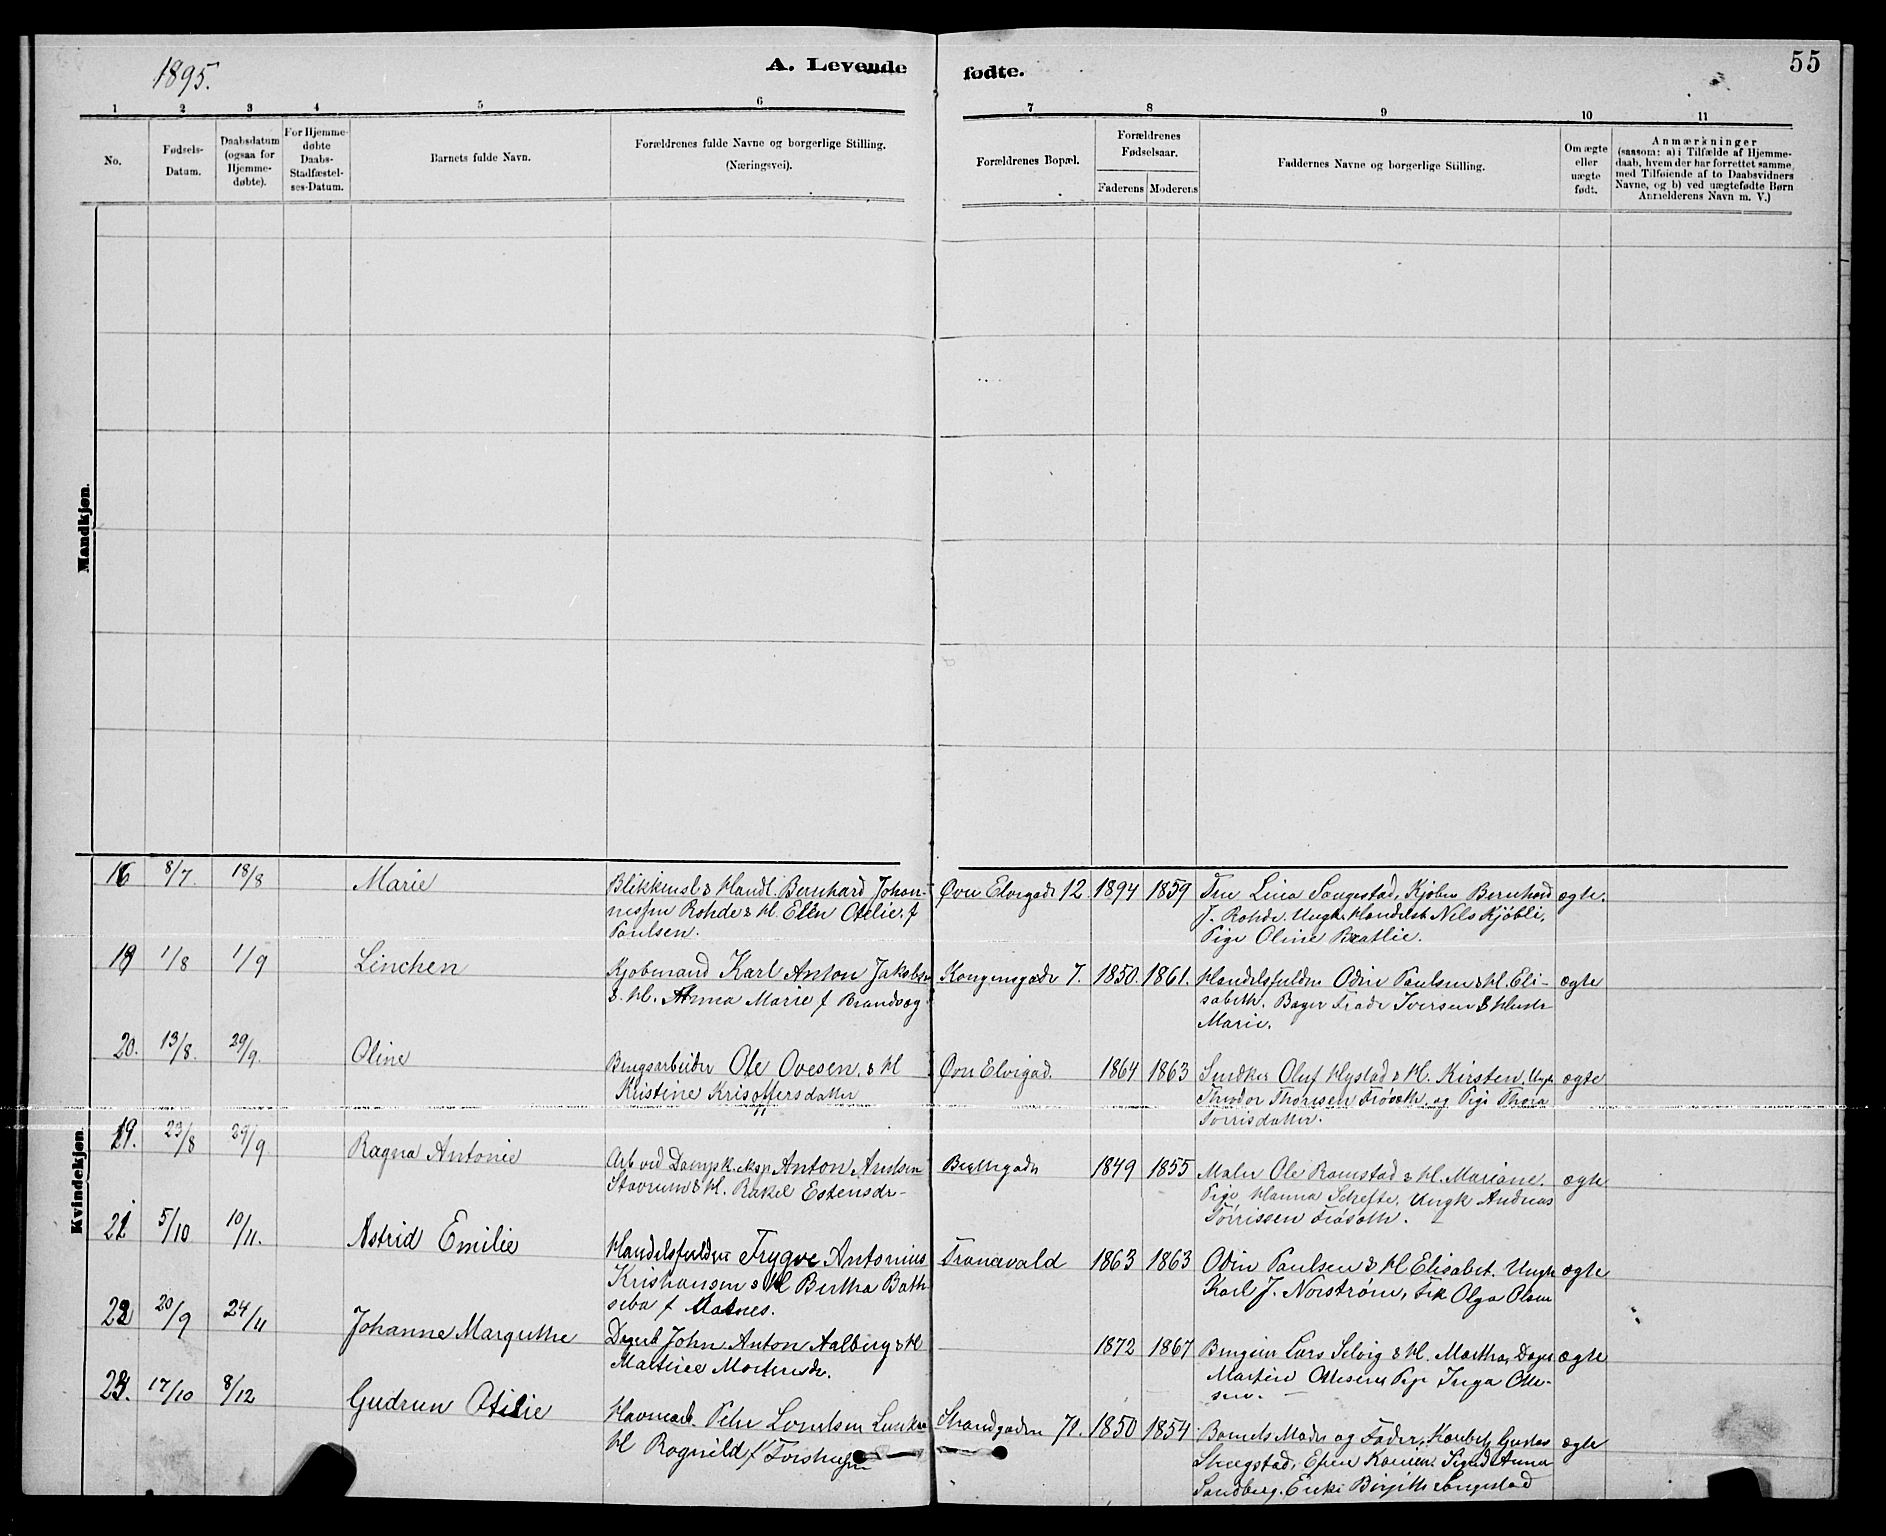 1895.
A. Levende fødte.
55
1 2 3 4 5 6 7 8 9 10 11
No.
Fødsels-Datum.
Daabsdatum (ogsaa for Hjemme-døbte).
For Hjemme-døbte Daabs-Stadfæstel-ses-Datum.
Barnets fulde Navn.
Forældrenes fulde Navne og borgerlige Stilling.
(Næringsvei).
Forældrenes Bopæl.
Forældrenes Fødselsaar.
Faderens Moderens
Faddernes Navne og borgerlige Stilling.
Om ægte eller uægte født.
Anmærkninger
(saasom: a) i Tilfælde af Hjemme-
daab, hvem der har forrettet samme,
med Tilføiende af to Daabsvidners
Navne, og b) ved uægtefødte Børn
Anmelderens Navn m. V.)
Mandkjøn.
Kvindekjøn.
16 8/7. 18/8 Marie
Blikkensl & Handl. Bernhard Johan-
nessen Rohde & H. Elen Otelie f
Paulsen.
Øvre Elvegade 12. 1894 1859
Fru Lina Sangestad, Kjøbm Bernhard
J. Rohde. Ungk. Handelsb Nils Kjöbli,
Pige Oline Beatlie.
ægte.
19 1/8 1/9 Linchen
Kjøbmand Karl Anton Jakobsen
& H. Anna Marie f Brandvog
Kongensgade 7. 1850. 1861.
Handelsfuldm Odin Paulsen & H. Eli-
sabeth. Bager Frade Iversen & Hustr
Marie.
ægte
20. 13/8. 29/9. Oline
Brugsarbeider Ole Ovesen. & H
Kristine Kristoffersdatter
Øvre Elvegad. 1864 1863
Snedker Oluf Hystad & H. Kirsten, Ungk
Theodor Thorresen og Pige Thora
Torrisdatter.
ægte
19. 23/8 29/9 Ragna Antonie
Arb ved Dampsk.eksp Anton Andersen
Stavrum & H. Rakel Estensdr-
1849 1855
Maler Ole Ramstad & H. Mariane.
Pige Hanna Schefte, Ungk Andreas
Törrissen
ægte
21 5/10 10/11. Astrid Emilie
Handelsfuldm Trygve Antonius
Kristiansen & H Bertha Bath-
seba f Matnes.
Tranavald 1863 1863
Odin Paulsen & H Elisabet. Ungk
Karl J. Norstrøm, Frk Olga Olsen
ægte
22 20/9 24/11 Johanne Margrethe
Dagarb John Anton Aalberg & H
Martine Mortensdr.
1872 1867
Lars Selvig & H. Martha, Dagar
Martin Ottesen Pige Inga Otte-
sen.
ægte
23. 17/10 8/12 Gudrun Otilie
Havnearb. Peder
H Ragnild f
Strandgaden 71. 1850 1854
Barnets Moder og Fader, Gustav
Skogstad, Karen Anna
Sandberg. Enke Birgitte Langestad
ægte